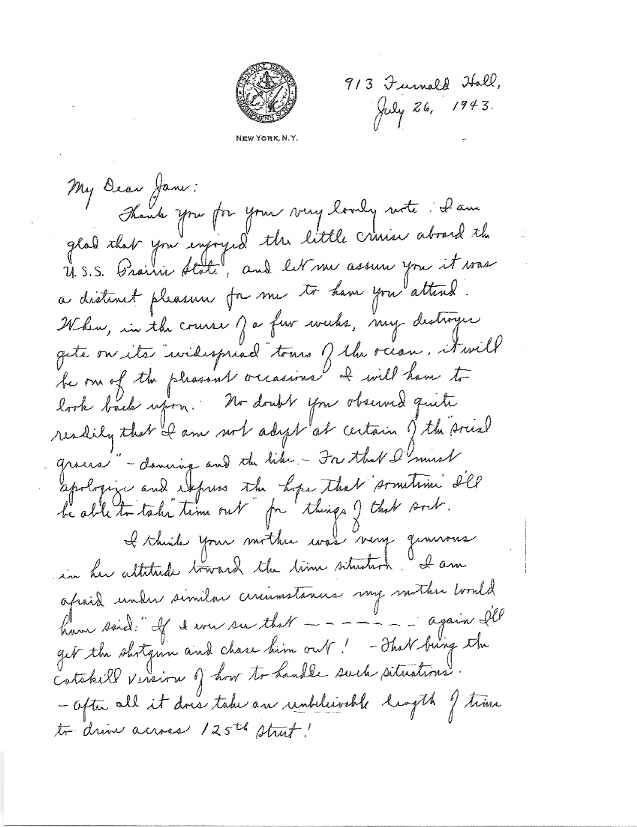 U.S. NAVAL RESERVE
MIDSHIPMEN'S SCHOOL
NEW YORK, N.Y.
913 Furnald Hall,
July 26, 1943.
My Dear Jane:
Thank you for your very lovely note. I am
glad that you enjoyed the little cruise aboard the
U.S.S. Prairie State", and let me assure you it was
a distinct pleasure for me to have you attend.
When, in the course of a few weeks, my destroyer
gets on its "widespread" tours of the ocean, it will
be one of the pleasant occasions I will have to
look back upon. No doubt you observed quite
readily that I am not adept at certain of the "social
graces" - dancing and the like. - For that I must
apologize and express the hope that "sometime" I'll
be able to take "time out" for things of that sort.
I think your mother was very generous
in her attitude toward the time situation. I am
afraid under similar circumstances my mother would
have said: "If I ever see that - - - - - - - again I'll
get the shotgun and chase him out! - That being the
Catskill version of how to handle such situations.
- after all it does take an unbelievable length of time
to drive across 125th street!